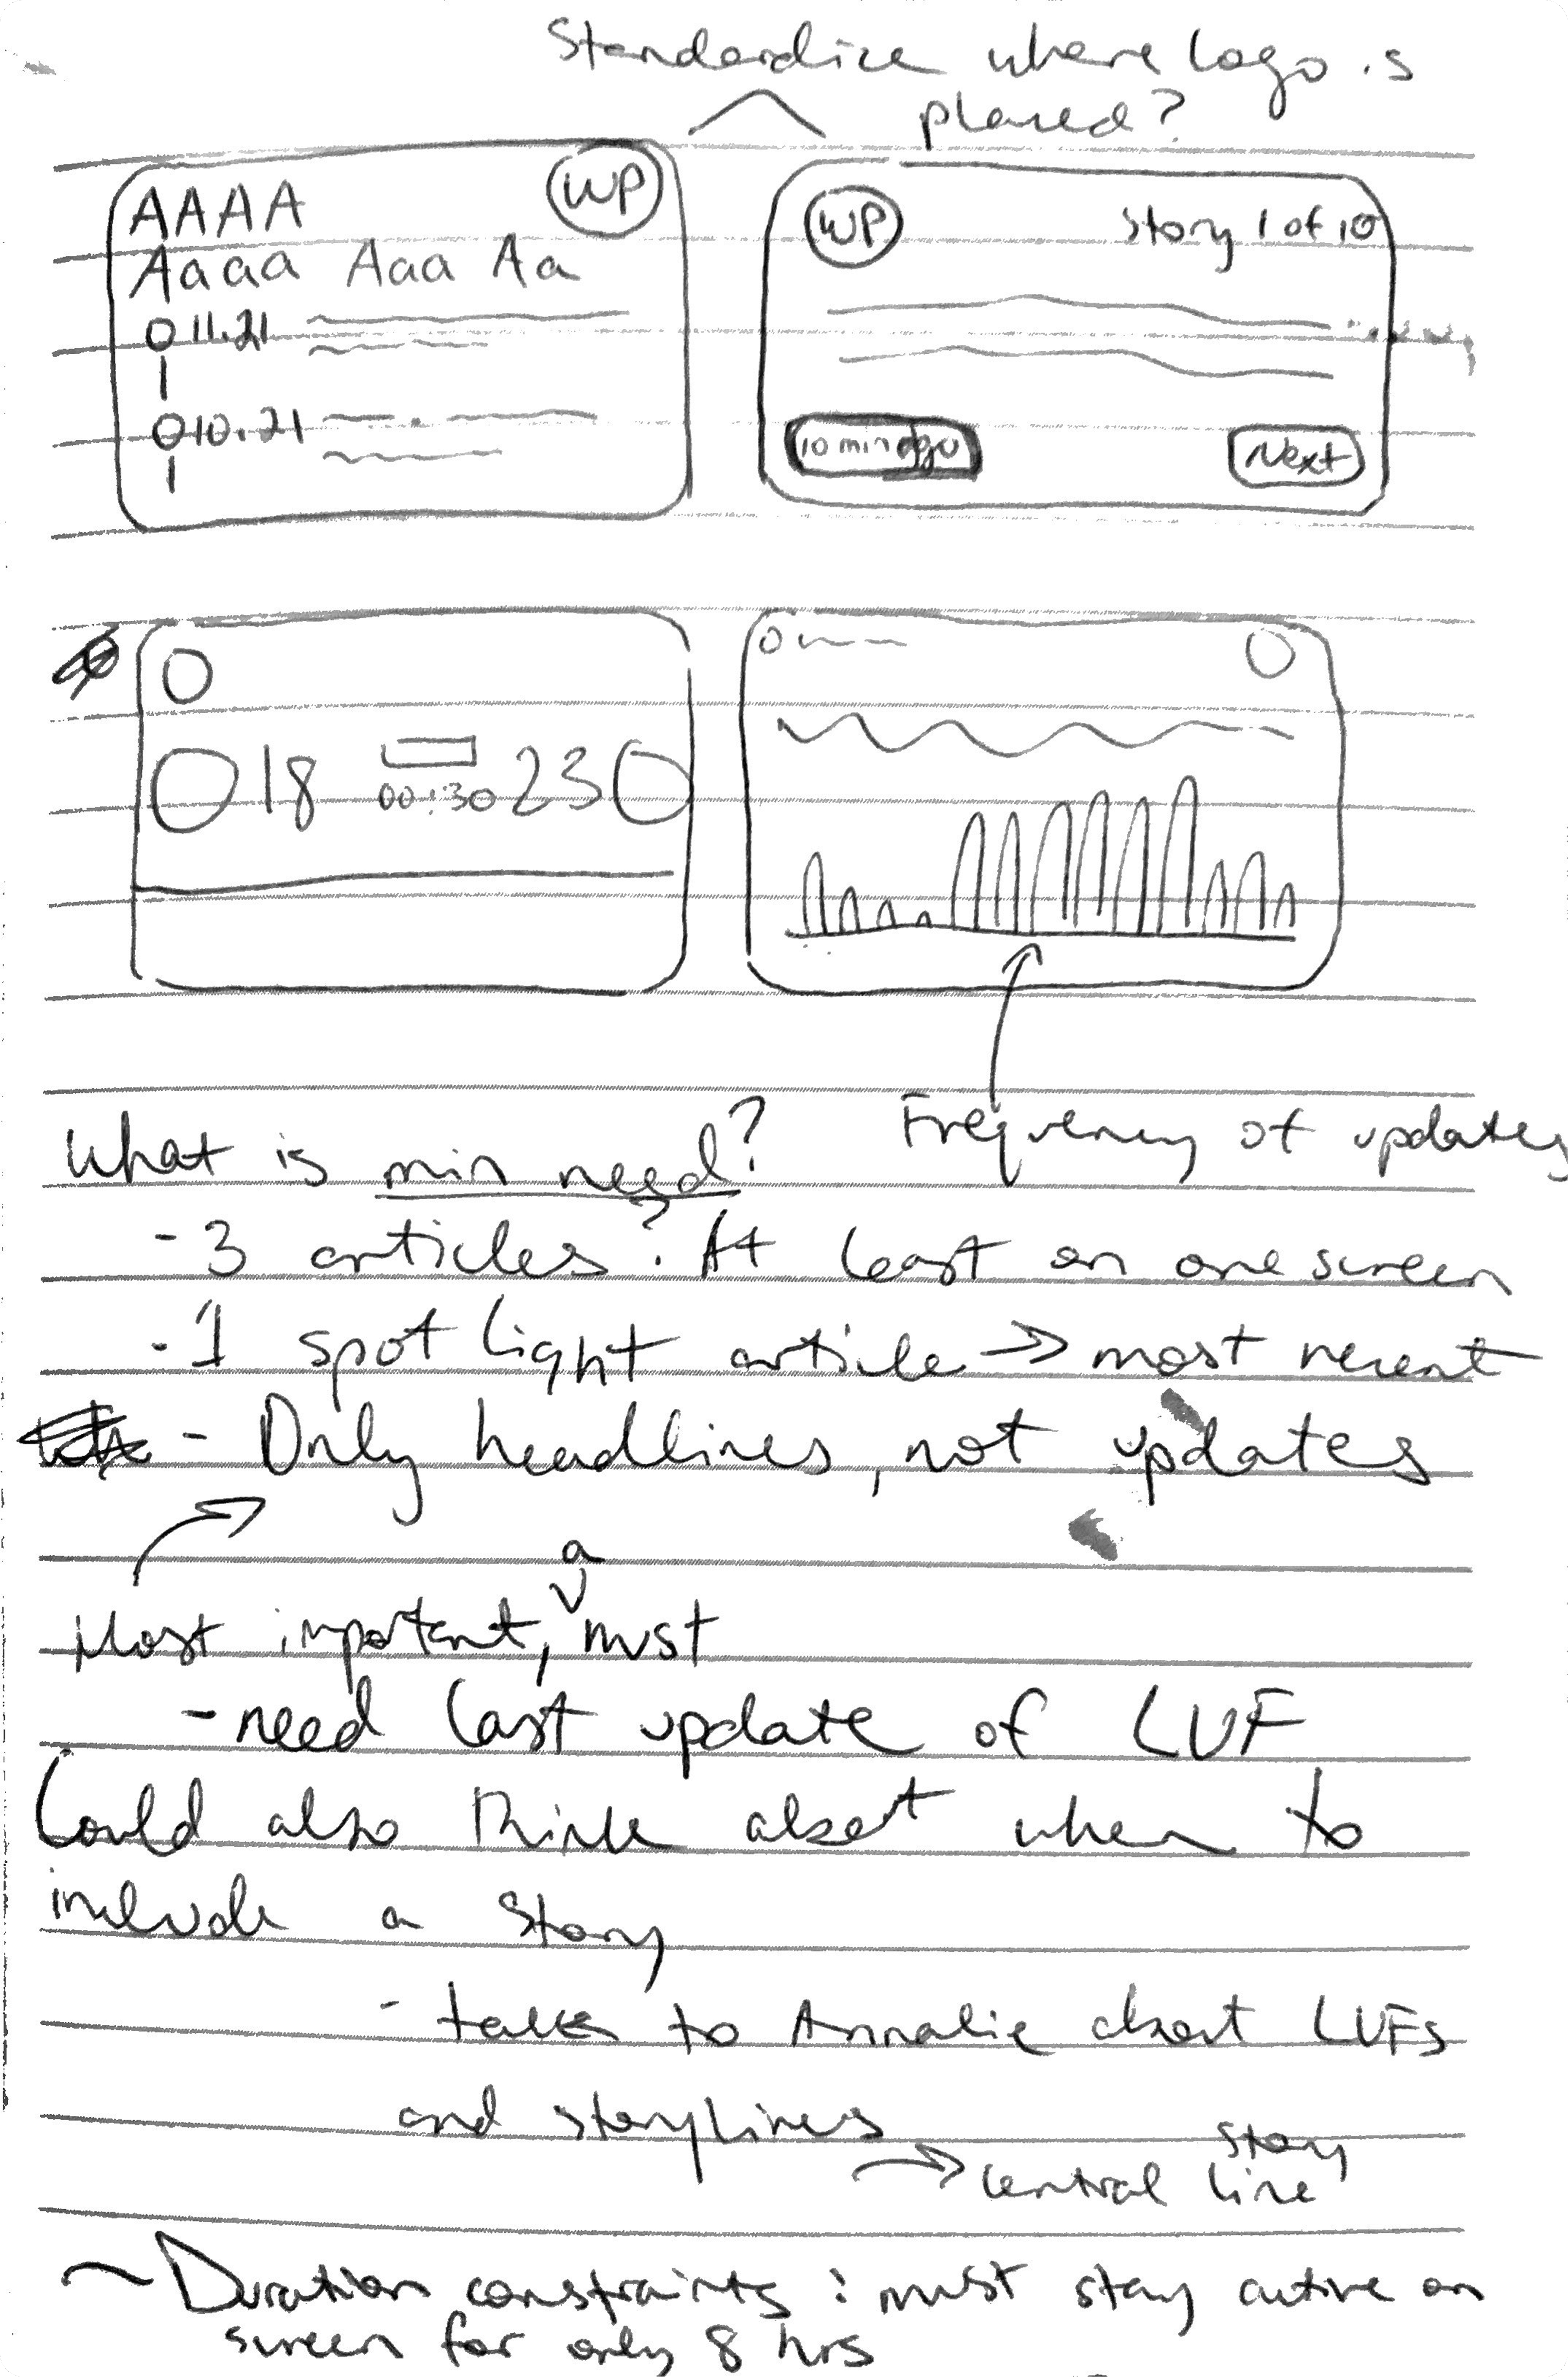 Standardize where logo is
placed?
AAAA
WP
Aaaa Aaa Aa
11.21
10.21
WP
Story 1 of 10
10 min ago
Next
18
00:30
23
Frequency of updates
What is min need?
- 3 articles? At least on one screen
- 1 spotlight article → most recent
- Only headlines, not updates
a
Most important, must
- need last update of LUF
Could also think about when to
include a story
- talk to Annalie about LUFs
and storylines
→ central story line
~ Duration constraints : must stay active on
screen for only 8 hrs